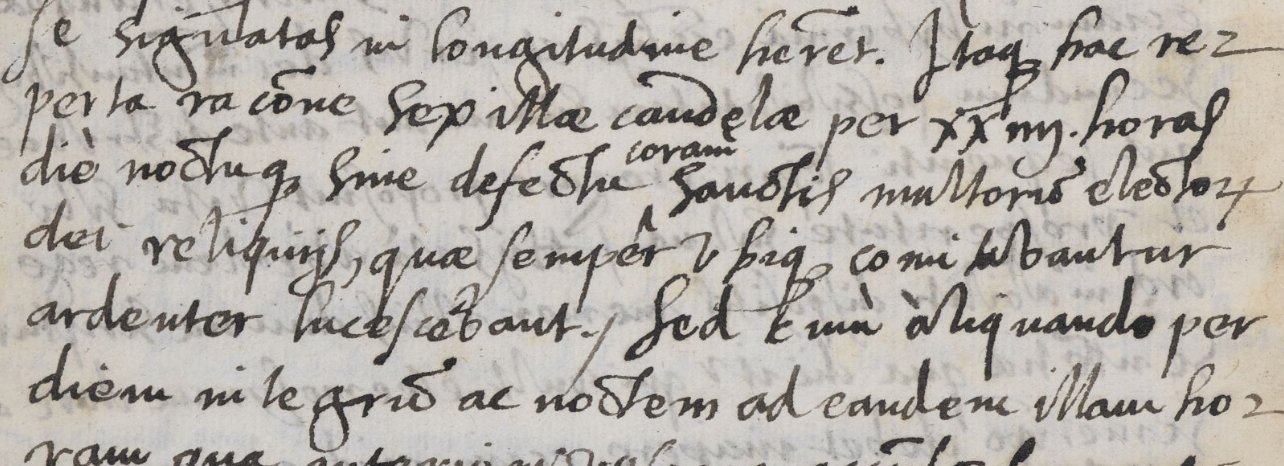 se signatas in longitudine heret. Itaq hac re-
perta racōne sex illæ candelæ per xxiiij. horas
die noctuq sine defectu coram sanctis multorū electorꝝ
dei reliquijs, quæ semper vbiq comitabantur
ardenter lucescebant./ Sed cum àliquando per
diem integrū ac noctem ad eandem illam ho-
ram qua